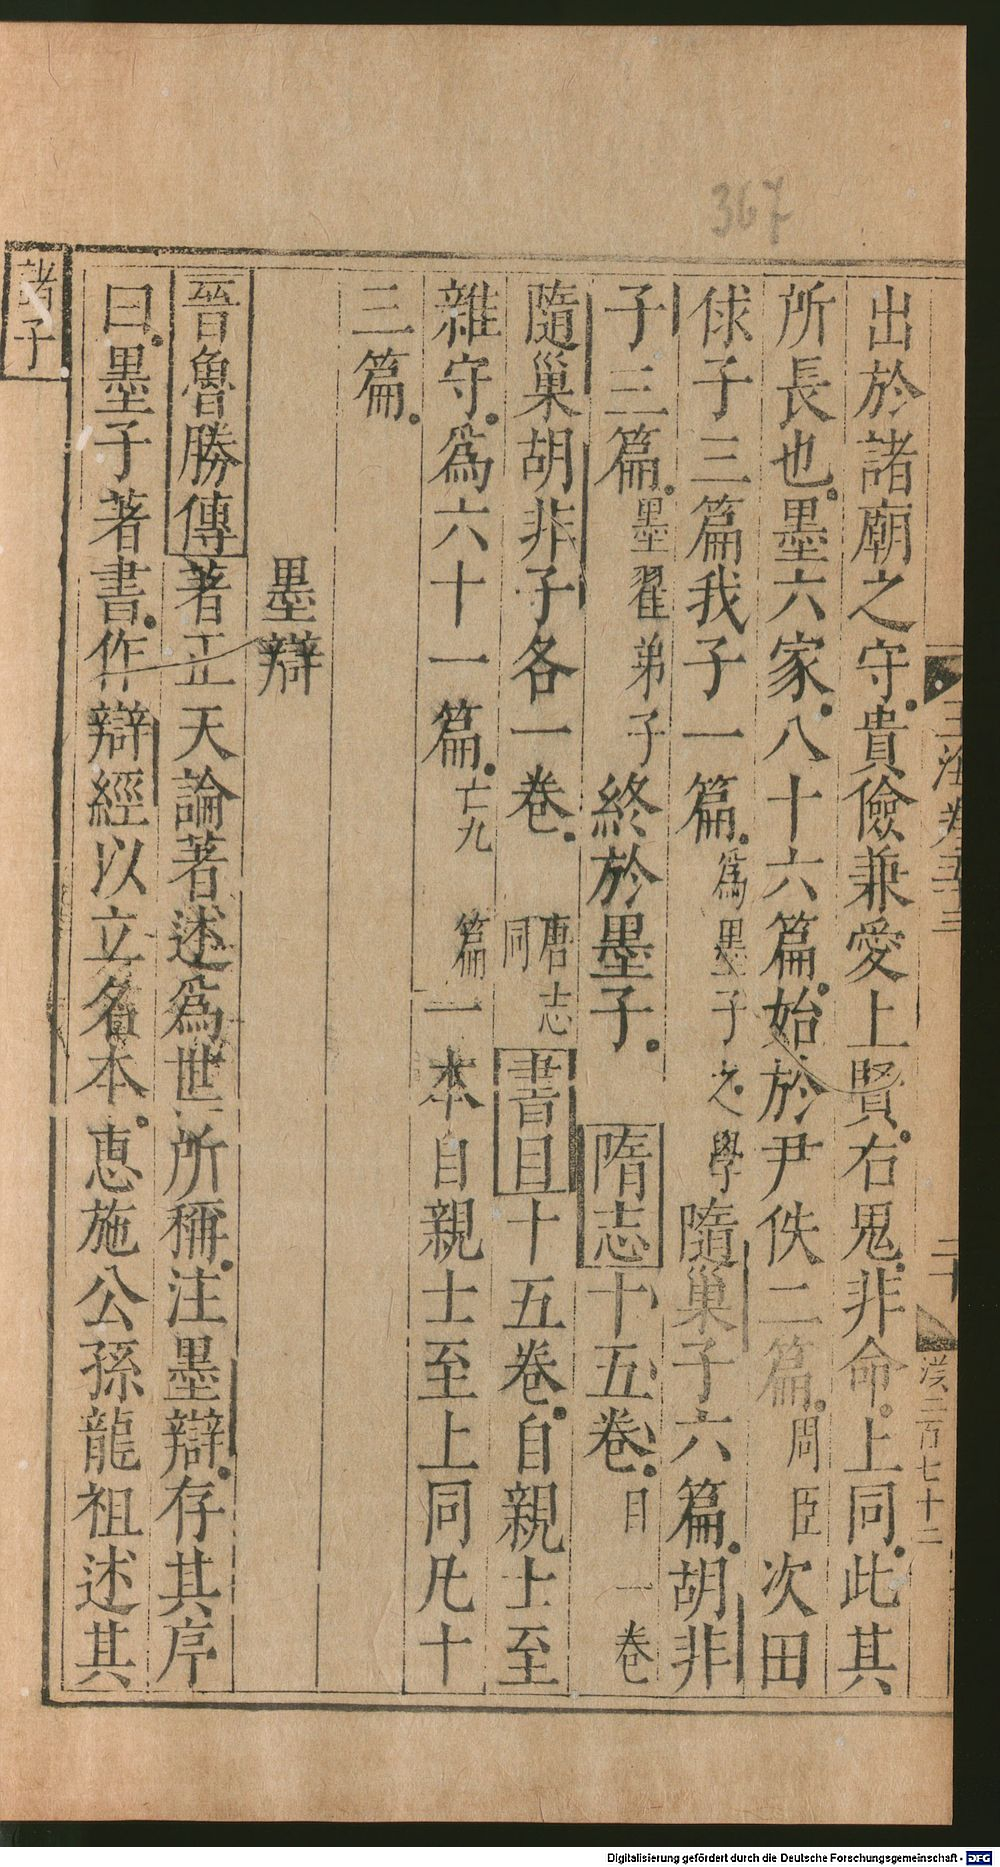 367
出於諸廟之守貴儉兼愛上賢右鬼非命上同此其
所長也墨六家八十六篇始於尹佚二篇周臣次田
俅子三篇我子一篇為墨子之學隨巢子六篇胡非
子三篇墨翟弟子終於墨子隋志十五卷目一卷
隨巢胡非子各一卷唐志同書目十五卷自親士至
雜守為六十一篇亡九篇一本自親士至上同凡十
三篇
墨辯
晉魯勝傳著正天論著述為世所稱注墨辯存其序
曰墨子著書作辯經以立名本惠施公孫龍祖述其
諸子
玉海卷五十三
二十
二百七十二
Digitalisierung gefördert durch die Deutsche Forschungsgemeinschaft - DFG